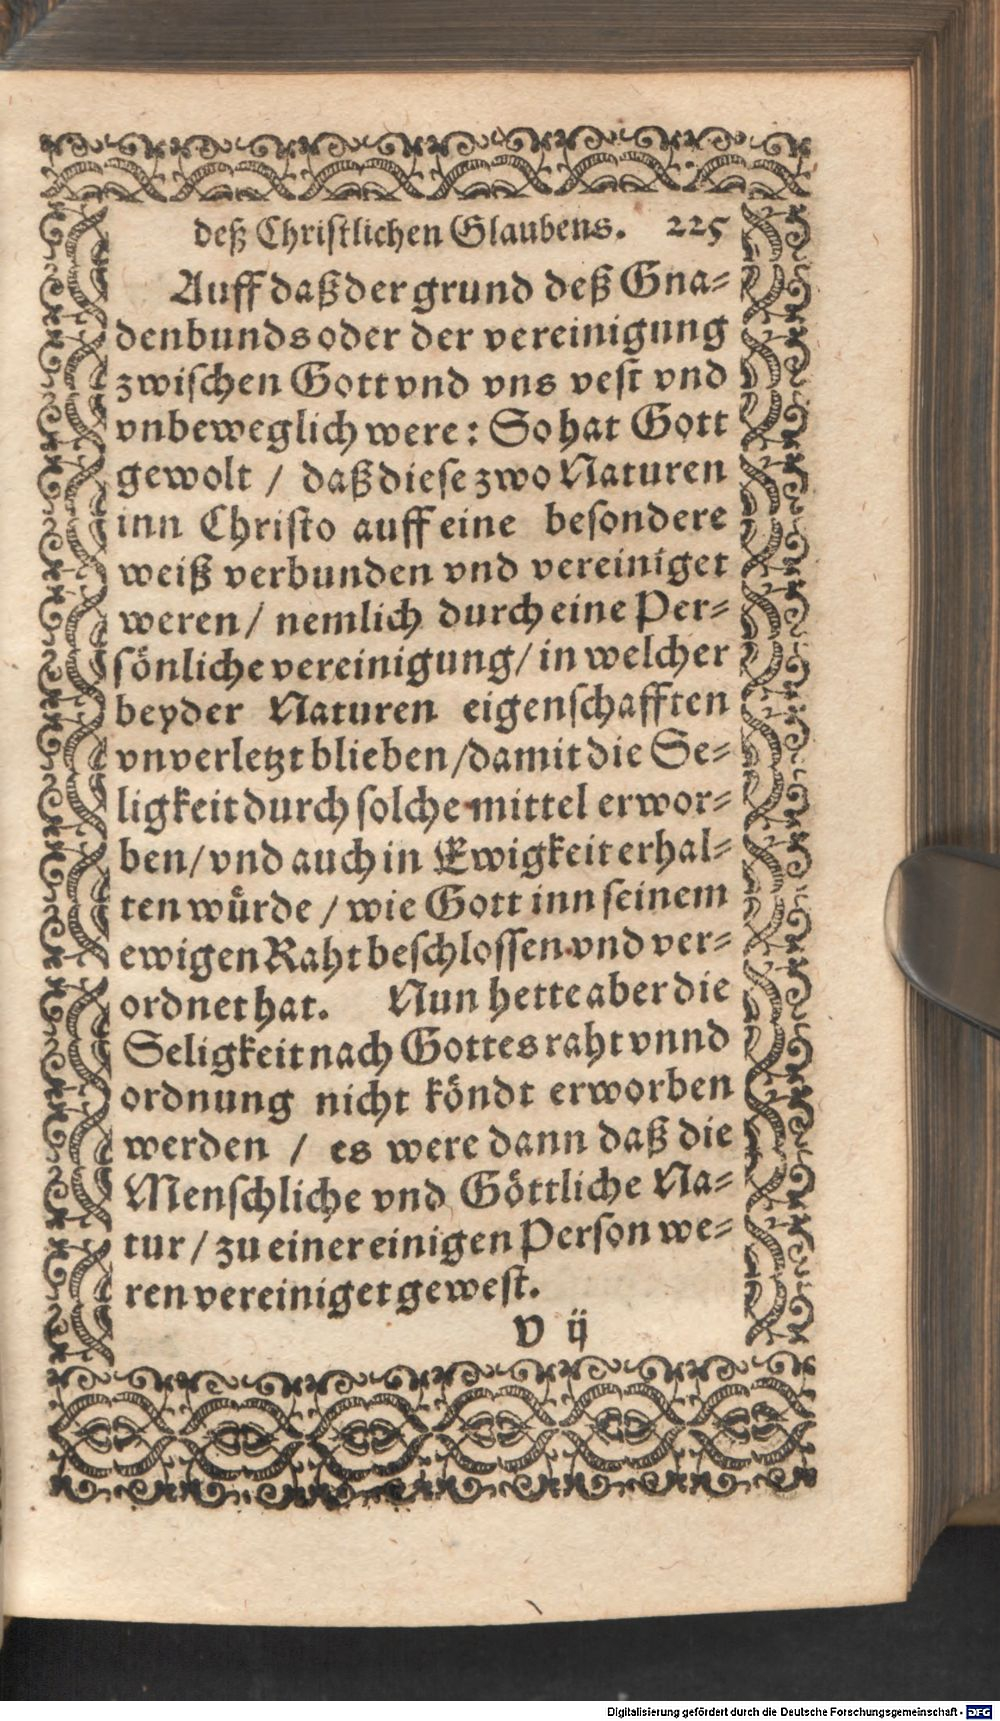 deß Christlichen Glaubens. 225
Auff daß der grund deß Gna⸗
denbunds oder der vereinigung
zwischen Gott vnd vns vest vnd
vnbeweglich were: So hat Gott
gewolt / daß diese zwo Naturen
inn Christo auff eine besondere
weiß verbunden vnd vereiniget
weren / nemlich durch eine Per⸗
sönliche vereinigung / in welcher
beyder Naturen eigenschafften
vnverletzt blieben / damit die Se⸗
ligkeit durch solche mittel erwor⸗
ben / vnd auch in Ewigkeit erhal⸗
ten würde / wie Gott inn seinem
ewigen Raht beschlossen vnd ver⸗
ordnet hat. Nun hette aber die
Seligkeit nach Gottes raht vnnd
ordnung nicht köndt erworben
werden / es were dann daß die
Menschliche vnd Göttliche Na⸗
tur / zu einer einigen Person we⸗
ren vereiniget gewest.
V ij
Digitalisierung gefördert durch die Deutsche Forschungsgemeinschaft - DFG